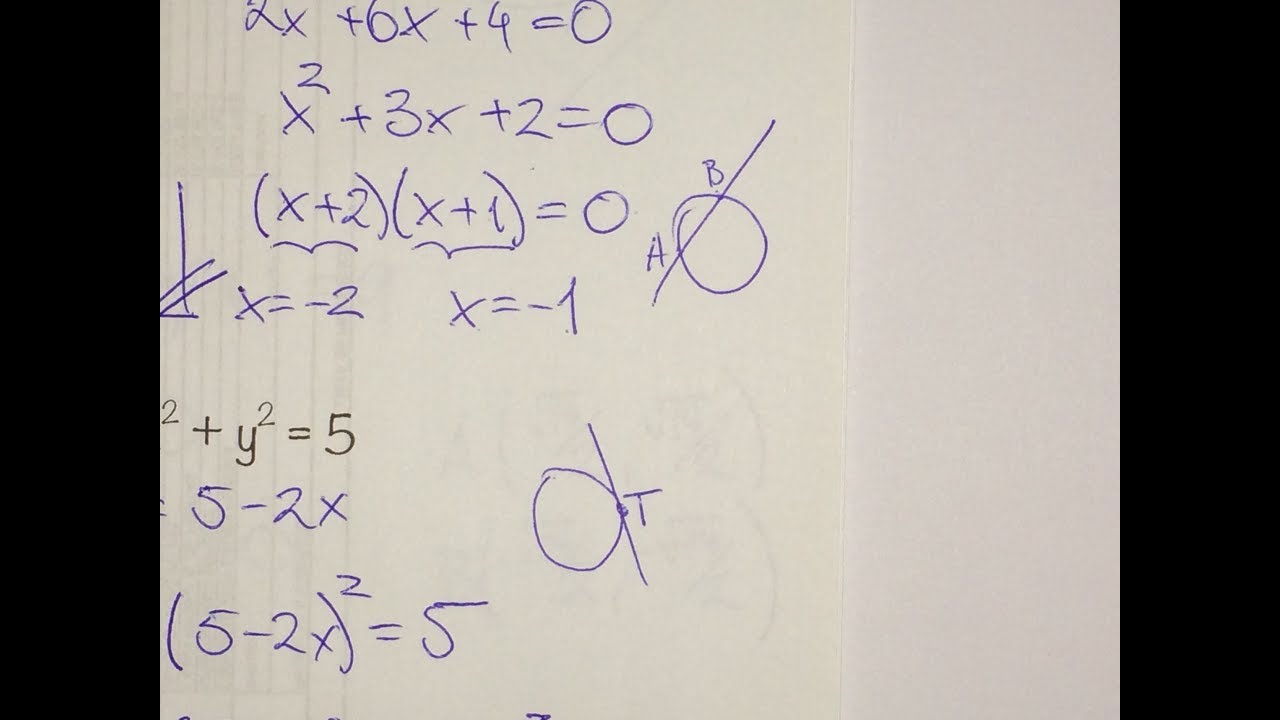 2x +6x+4=0
x²+3x+2=0
(x+2)(x+1)=0
x=-2 x=-1
B
A
² + y² = 5
= 5-2x
T
(5-2x)²=5